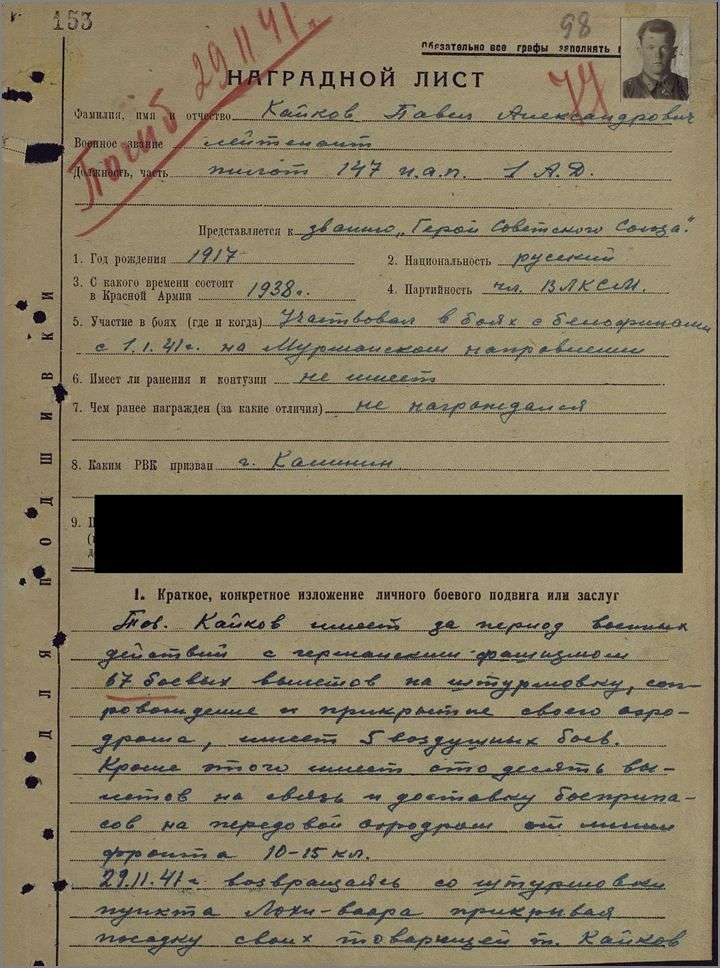 153
98
Обязательно все графы заполнять
Погиб 29 11 41 г.
НАГРАДНОЙ ЛИСТ
Фамилия, имя и отчество Кайков Павел Александрович
Военное звание лейтенант
Должность, часть пилот 147 и.а.п. 1 А.Д.
Представляется к званию „Герой Советского Союза".
1. Год рождения 1917
2. Национальность русский
3. С какого времени состоит
в Красной Армии 1938 г.
4. Партийность чл. ВЛКСМ.
5. Участие в боях (где и когда) Участвовал в боях с белофинами
с 1.1.41 г. на Мурманском направлении
6. Имеет ли ранения и контузии не имеет
7. Чем ранее награжден (за какие отличия) не награждался
8. Каким РВК призван г. Калинин.
9.
ДЛЯ ПОДШИВКИ
I. Краткое, конкретное изложение личного боевого подвига или заслуг
Тов. Кайков имеет за период военных
действий с германским фашизмом
67 боевых вылетов на штурмовку, соп-
ровождение и прикрытие своего аэро-
дрома, имеет 5 воздушных боев.
Кроме этого имеет сто десять вы-
летов на связь и доставку боеприпа-
сов на передовой аэродром от линии
фронта 10-15 кл.
29.11.41 г. возвращаясь со штурмовки
пункта Лохи-ваара прикрывая
посадку своих товарищей т. Кайков